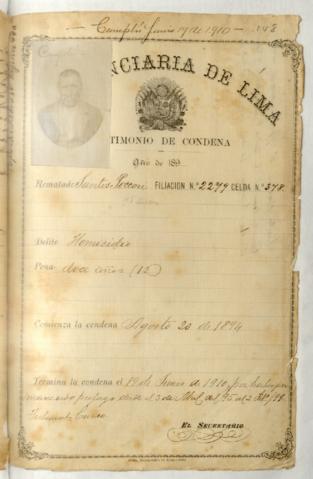 Cumplió Junio 19 de 1910
NCIARIA DE LIMA
TIMONIO DE CONDENA
Año de 189
Rematado Santos FILIACION N.º 2279 CELDA N.º 378
Delito Homicidio
Pena doce años (12)
Comienza la condena Agosto 20 de 1894
Termina la condena el 19 de Junio de 1910, por
desde el 3 de Abril del 95 al 2
EL SECRETARIO